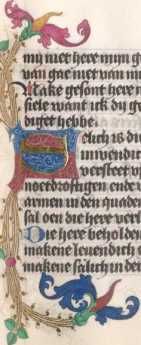 mij niet here mijn g
van gae niet van mi
Make gesont here m
siele want ick dy g
diget hebbe.
Selich is di
inwendich
versteet v
nootdroftigen ende v
armen in den quaden
sal oen die here verl
Die here beholde
makene leuendich e
makene salich in der